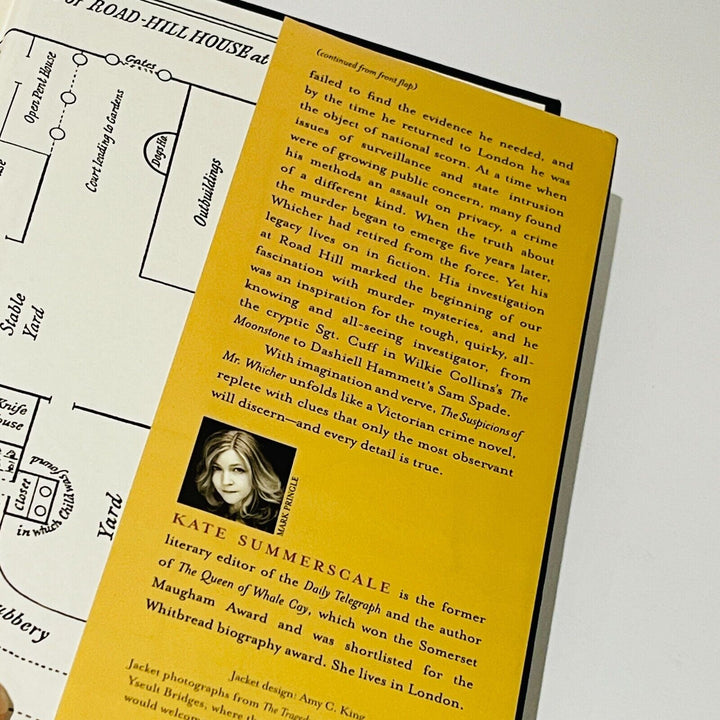 of ROAD-HILL HOUSE at
Open Pent House
Gates
Court leading to Gardens
Dogs Ho.
Outbuildings
Stable
Yard
Knife
House
Closet
in which Child was found
Yard
(continued from front flap)
failed to find the evidence he needed, and
by the time he returned to London he was
the object of national scorn. At a time when
issues of surveillance and state intrusion
were of growing public concern, many found
his methods an assault on privacy, a crime
of a different kind. When the truth about
the murder began to emerge five years later,
Whicher had retired from the force. Yet his
legacy lives on in fiction. His investigation
at Road Hill marked the beginning of our
fascination with murder mysteries, and he
was an inspiration for the tough, quirky, all-
knowing and all-seeing investigator, from
the cryptic Sgt. Cuff in Wilkie Collins's The
Moonstone to Dashiell Hammett's Sam Spade.
With imagination and verve, The Suspicions of
Mr. Whicher unfolds like a Victorian crime novel,
replete with clues that only the most observant
will discern—and every detail is true.
MARK PRINGLE
KATE SUMMERSCALE is the former
literary editor of the Daily Telegraph and the author
of The Queen of Whale Cay, which won the Somerset
Maugham Award and was shortlisted for the
Whitbread biography award. She lives in London.
Jacket design: Amy C. King
Jacket photographs from The
Yseult Bridges, where
would welcome